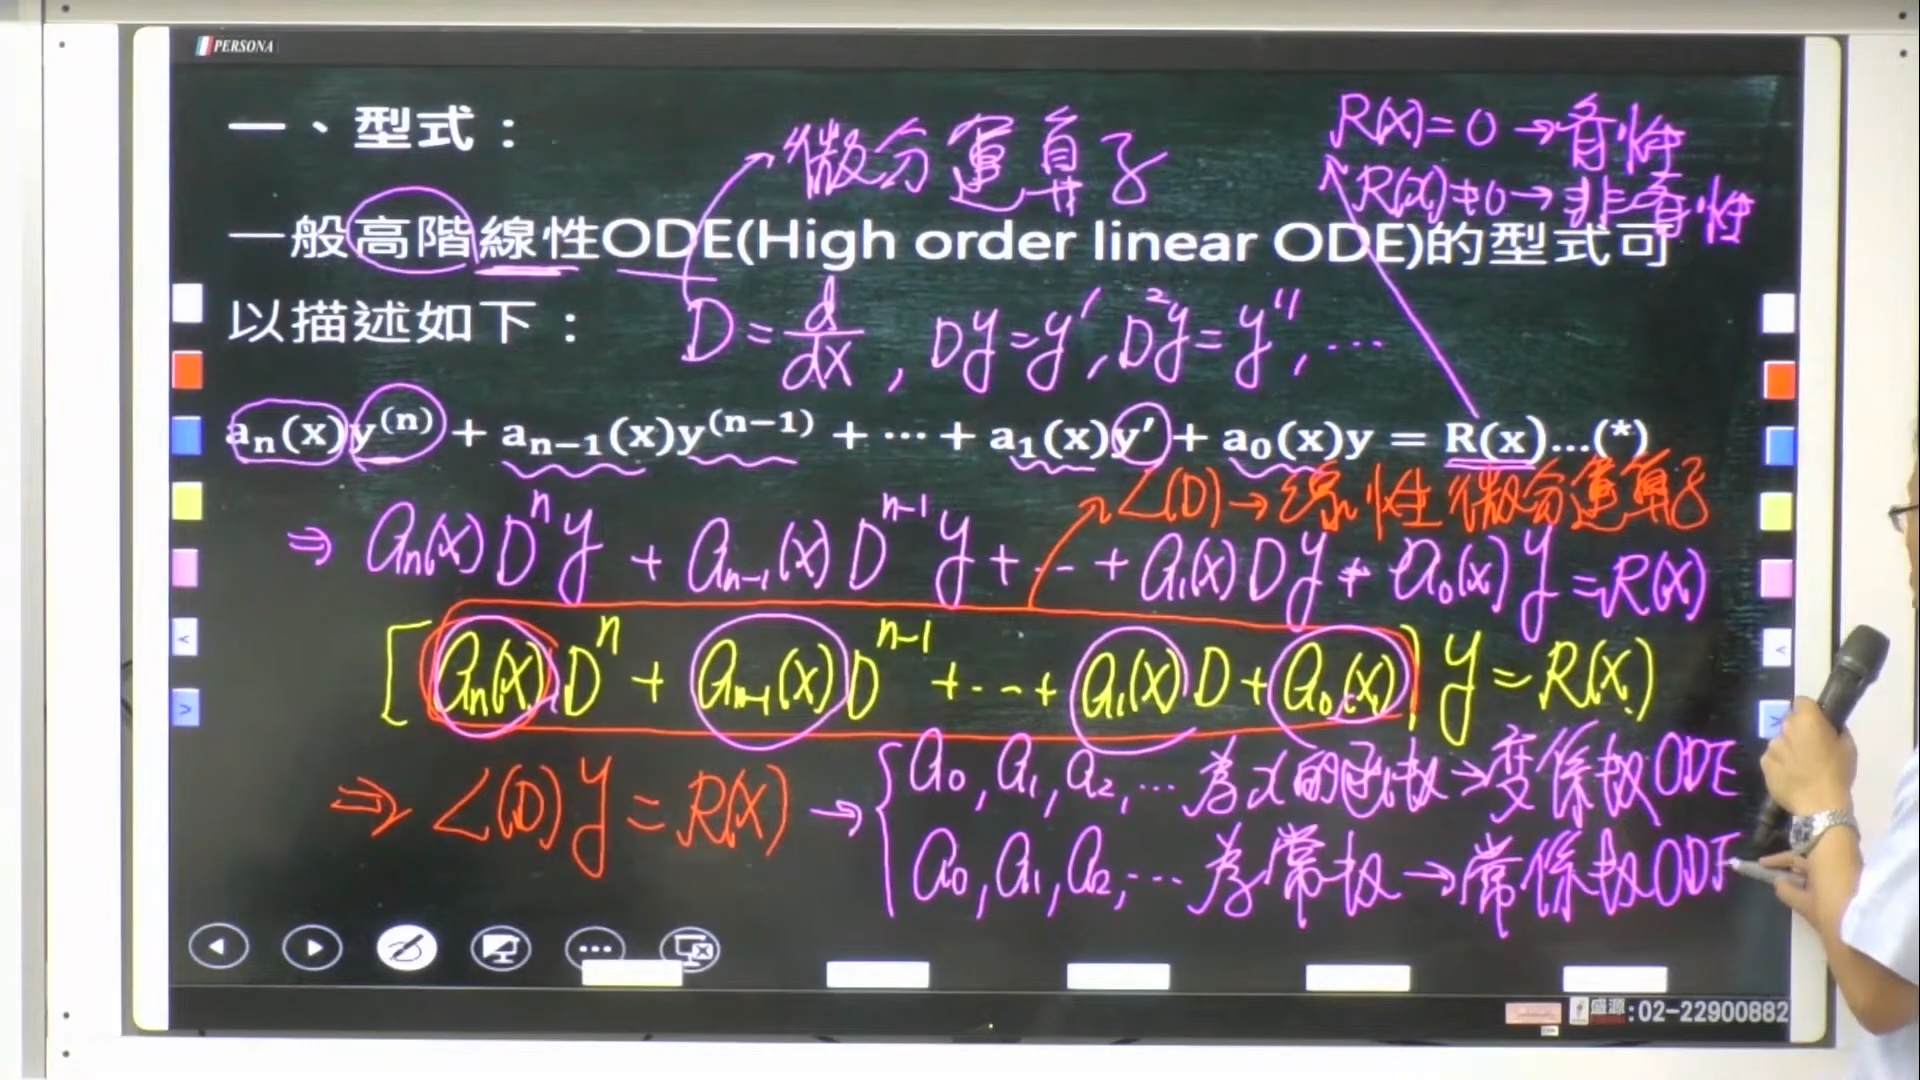 PERSONA
一、型式：
微分運算子
R(x)=0→齊性
R(x)≠0→非齊性
一般高階線性ODE(High order linear ODE)的型式可
以描述如下：
D=d/dx, Dy=y′, D²y=y″, …
aₙ(x)y⁽ⁿ⁾ + aₙ₋₁(x)y⁽ⁿ⁻¹⁾ + ⋯ + a₁(x)y′ + a₀(x)y = R(x)…(*)
L(D)→線性微分運算子
⇒ aₙ(x)Dⁿy + aₙ₋₁(x)Dⁿ⁻¹y + … + a₁(x)Dy + a₀(x)y = R(x)
[aₙ(x)Dⁿ + aₙ₋₁(x)Dⁿ⁻¹ + … + a₁(x)D + a₀(x)] y = R(x)
⇒ L(D)y = R(x) → {
a₀, a₁, a₂, … 為x的函数→变係数ODE
a₀, a₁, a₂, … 為常数→常係数ODE
盛源:02-22900882